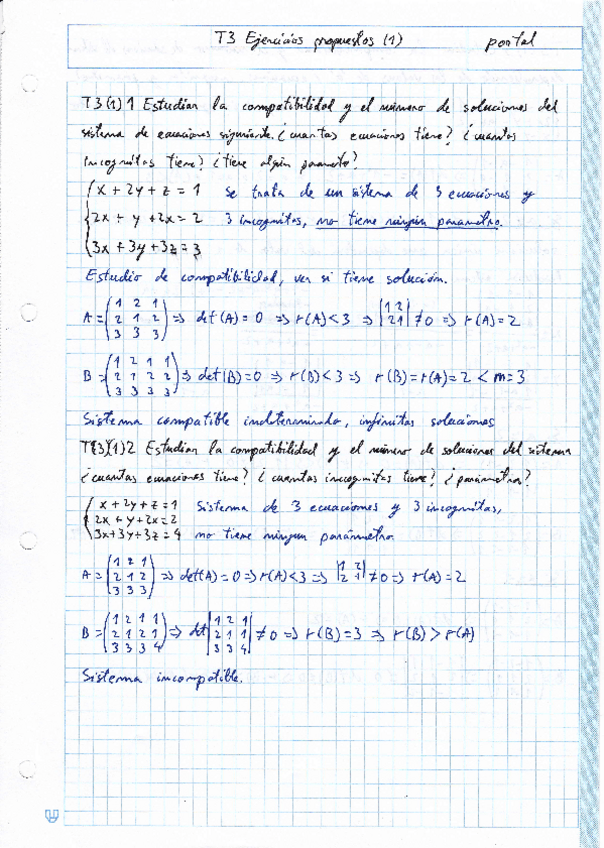 T3 Ejercicios propuestos (1) portal
T3(1)1 Estudiar la compatibilidad y el número de soluciones del
sistema de ecuaciones siguiente. ¿cuantas ecuaciones tiene? ¿cuantas
incognitas tiene? ¿tiene algún parametro?
x + 2y + z = 1 Se trata de un sistema de 3 ecuaciones y
2x + y + 2x = 2 3 incognitas, no tiene ningún parametro.
3x + 3y + 3z = 3
Estudio de compatibilidad, ver si tiene solución.
A = (1 2 1 / 2 1 2 / 3 3 3) => det(A) = 0 => r(A) < 3 => |1 2 / 2 1| ≠ 0 => r(A) = 2
B = (1 2 1 1 / 2 1 2 2 / 3 3 3 3) => det(B) = 0 => r(B) < 3 => r(B) = r(A) = 2 < m = 3
Sistema compatible indeterminado, infinitas soluciones
T3(1)2 Estudiar la compatibilidad y el número de soluciones del sistema
¿cuantas ecuaciones tiene? ¿cuantas incognitas tiene? ¿parámetros?
x + 2y + z = 1 Sistema de 3 ecuaciones y 3 incognitas,
2x + y + 2x = 2
3x + 3y + 3z = 4 no tiene ningun parámetro.
A = (1 2 1 / 2 1 2 / 3 3 3) => det(A) = 0 => r(A) < 3 => |1 2 / 2 1| ≠ 0 => r(A) = 2
B = (1 2 1 1 / 2 1 2 1 / 3 3 3 4) => det |1 2 1 / 2 1 1 / 3 3 4| ≠ 0 => r(B) = 3 => r(B) > r(A)
Sistema incompatible.